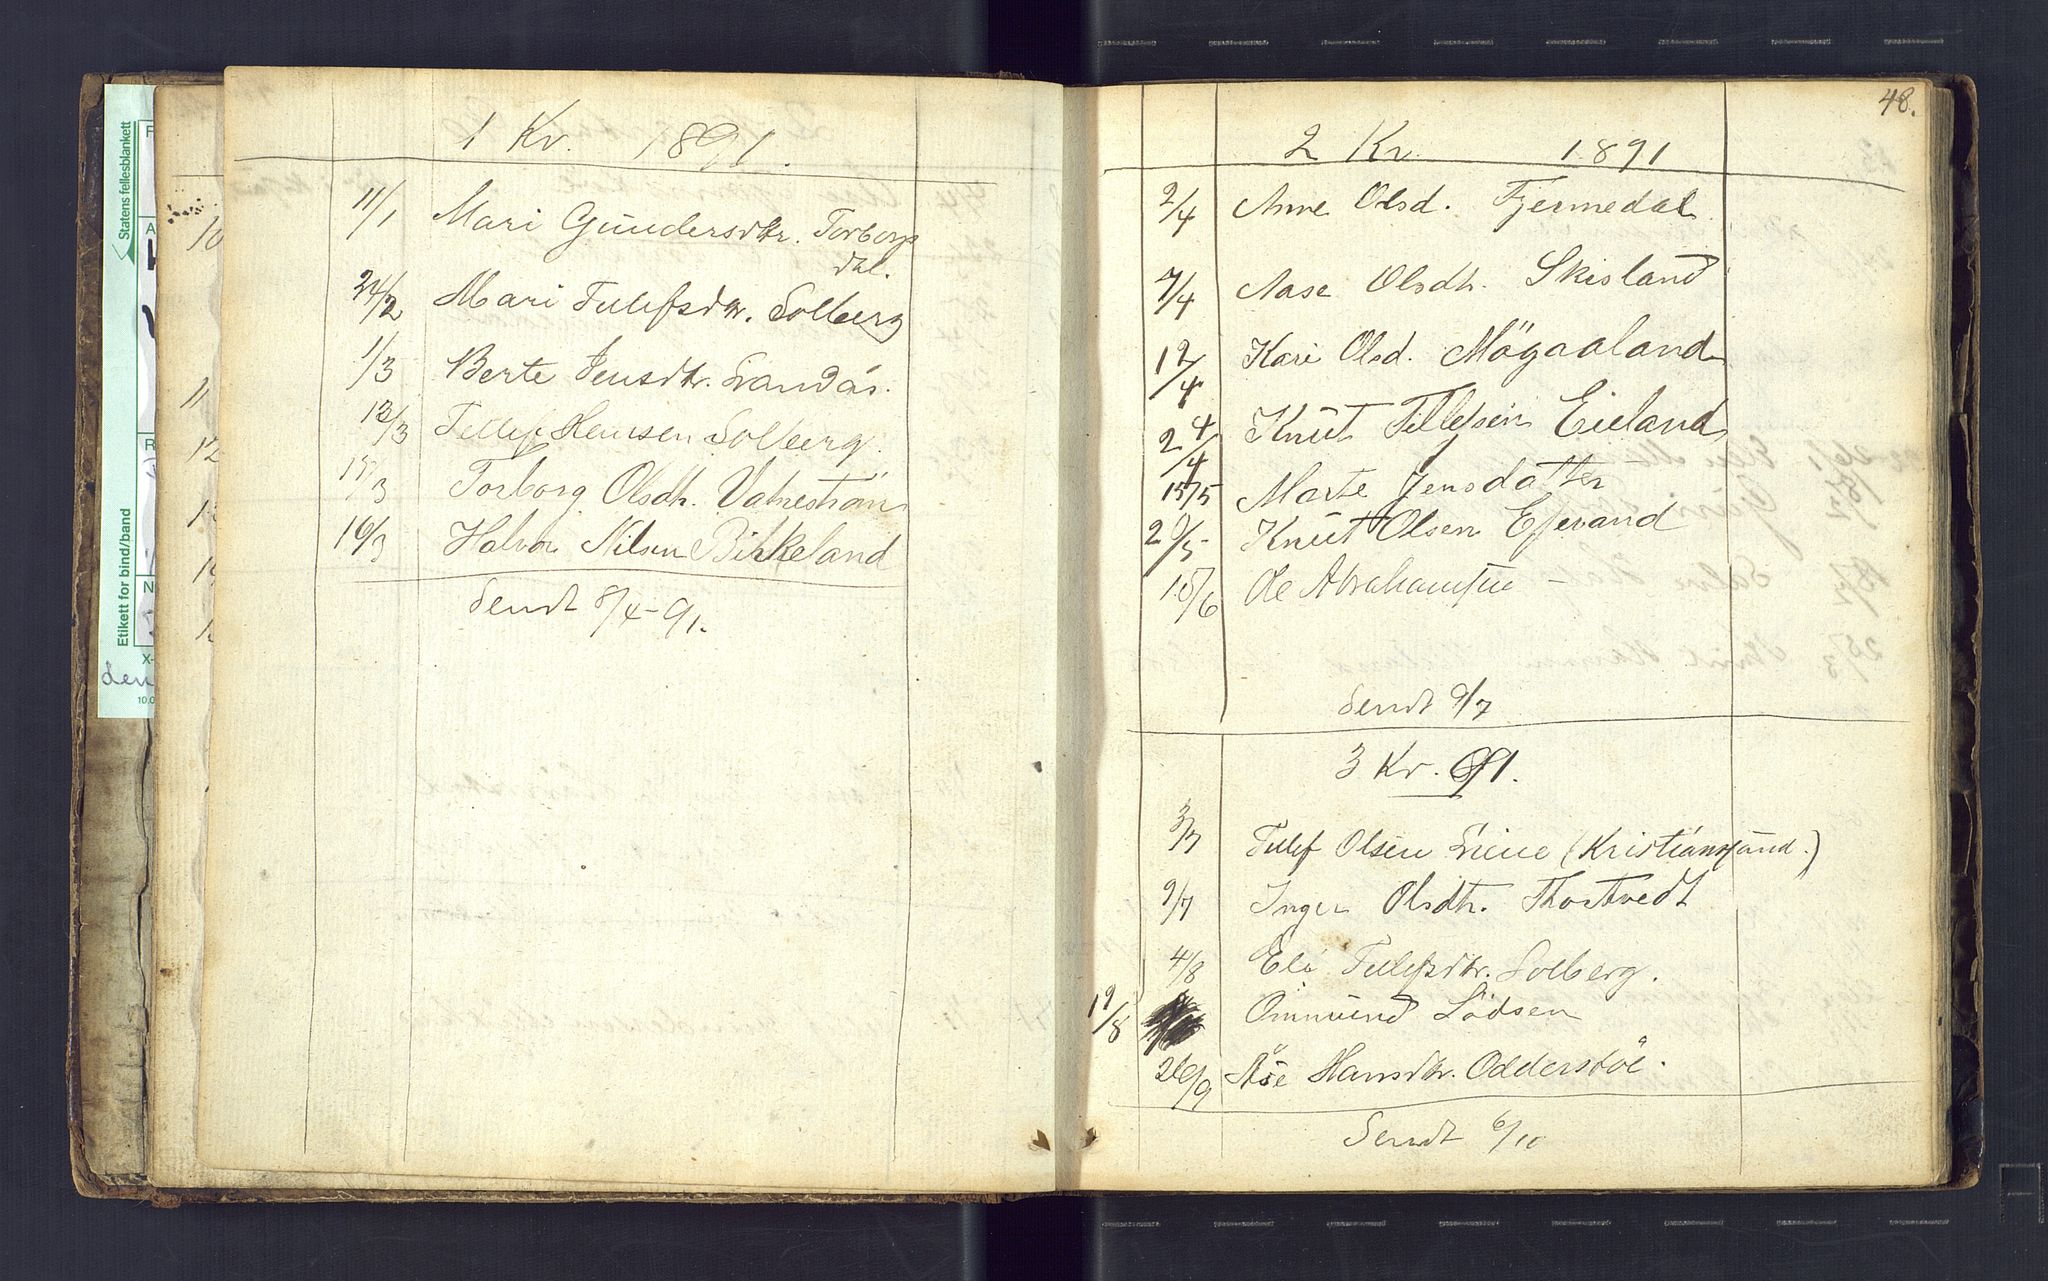 1 Kr. 1891.
11/1 Mari Gundersdtr. Torborgs
dal.
24/2 Mari Tellefsdtr. Solberg
1/3 Berte Jensdtr. Landås.
12/3 Tellef Hensen Solberg.
15/3 Torborg Olsdtr. Vatnestrøm
16/3 Halvor Nilsen Birkeland
Sendt 8/4-91.
48.
2 Kr 1891
2/4 Anne Olsd. Fjermedal
7/4 Aase Olsdtr. Skisland
12/4 Kari Olsd. Mögaaland
24/4 Knut Tellefsen Eieland
15/5 Marte Jensdatter
20/5 Knut Olsen Efjevand
15/6 Ole Abrahamsen –
Sendt 9/7
3 Kr. 91.
3/7 Tellef Olsen Liene (Kristianssand.)
9/7 Inger Olsdtr. Thortvedt
4/8 Eli Tellefsdtr. Solberg.
19/8 Ommund Lödsen
26/9 Åse Hansdtr. Odderstöl.
Sendt 6/10
Statens fellesblankett
Etikett for bind/bånd
den